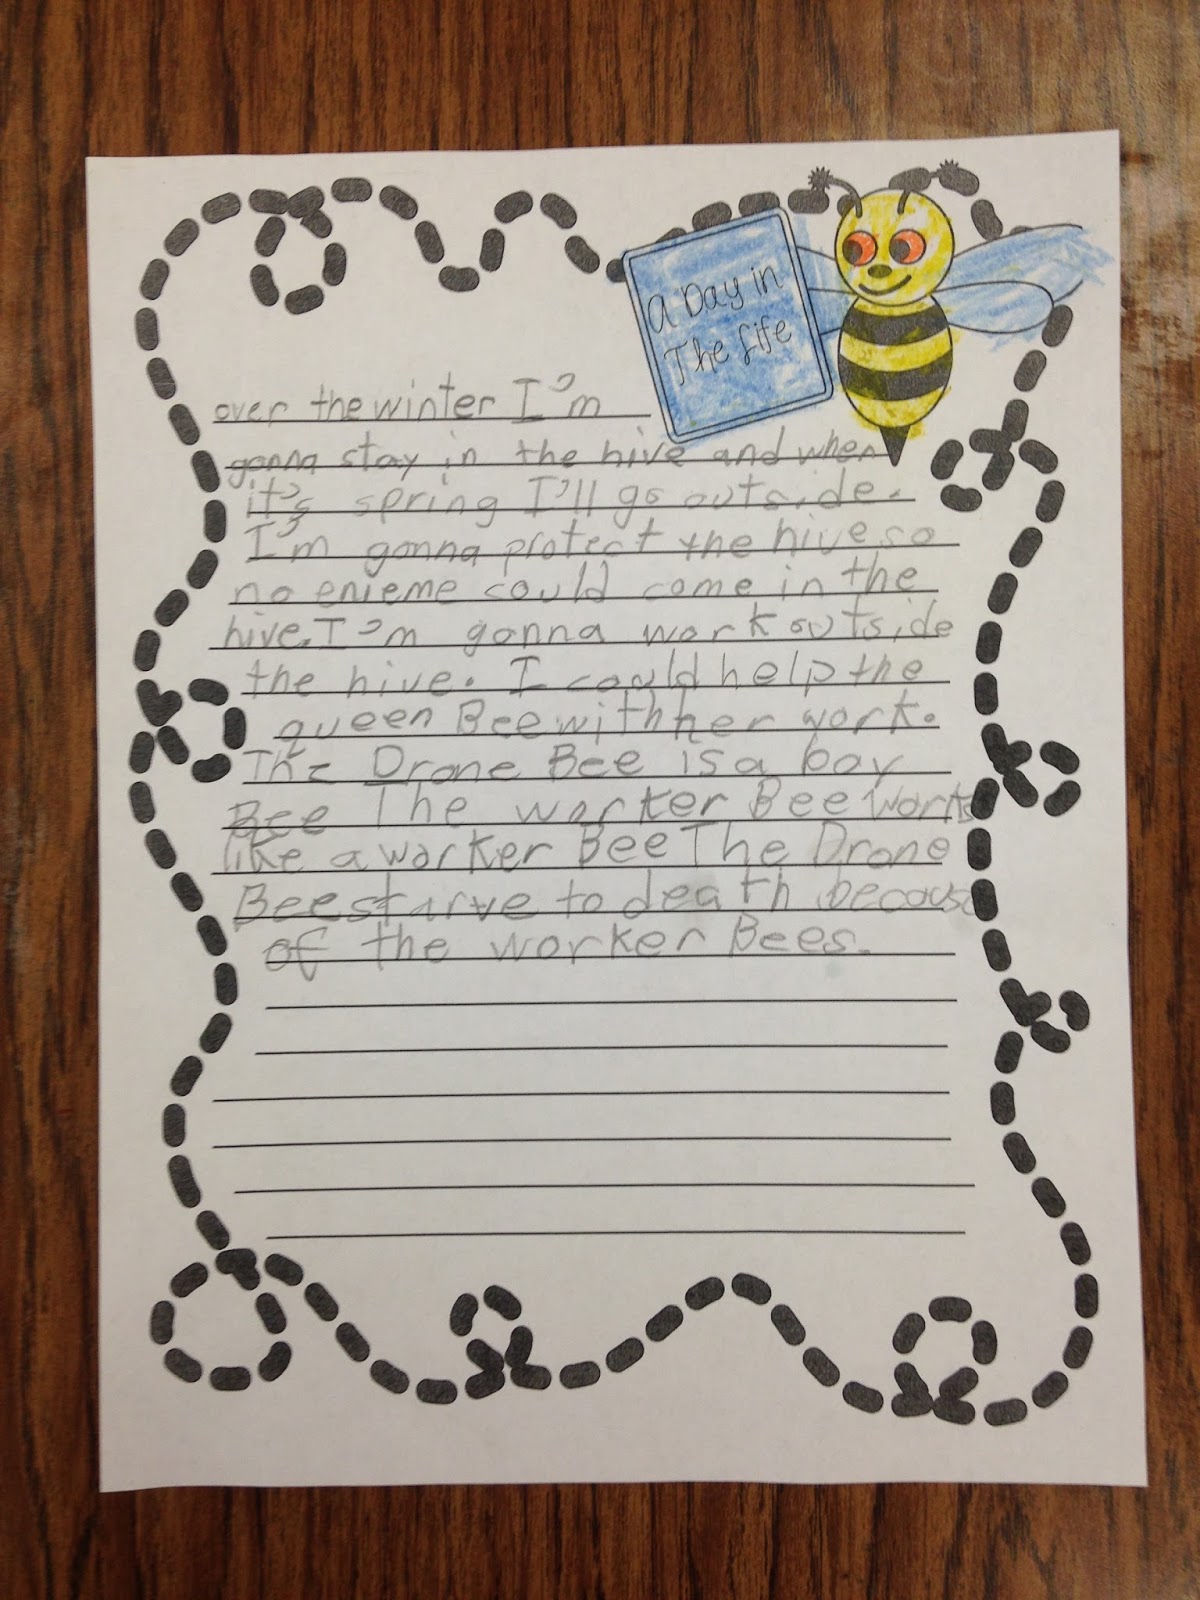 A Day in
The Life
over the winter I'm
gonna stay in the hive and when
it's spring I'll go outside.
I'm gonna protect the hive so
no enieme could come in the
hive. I'm gonna work outside
the hive. I could help the
queen Bee with her work.
The Drone Bee is a boy
Bee The worker Bee works
like a worker Bee The Drone
Bee starve to death becouse
of the worker Bees.